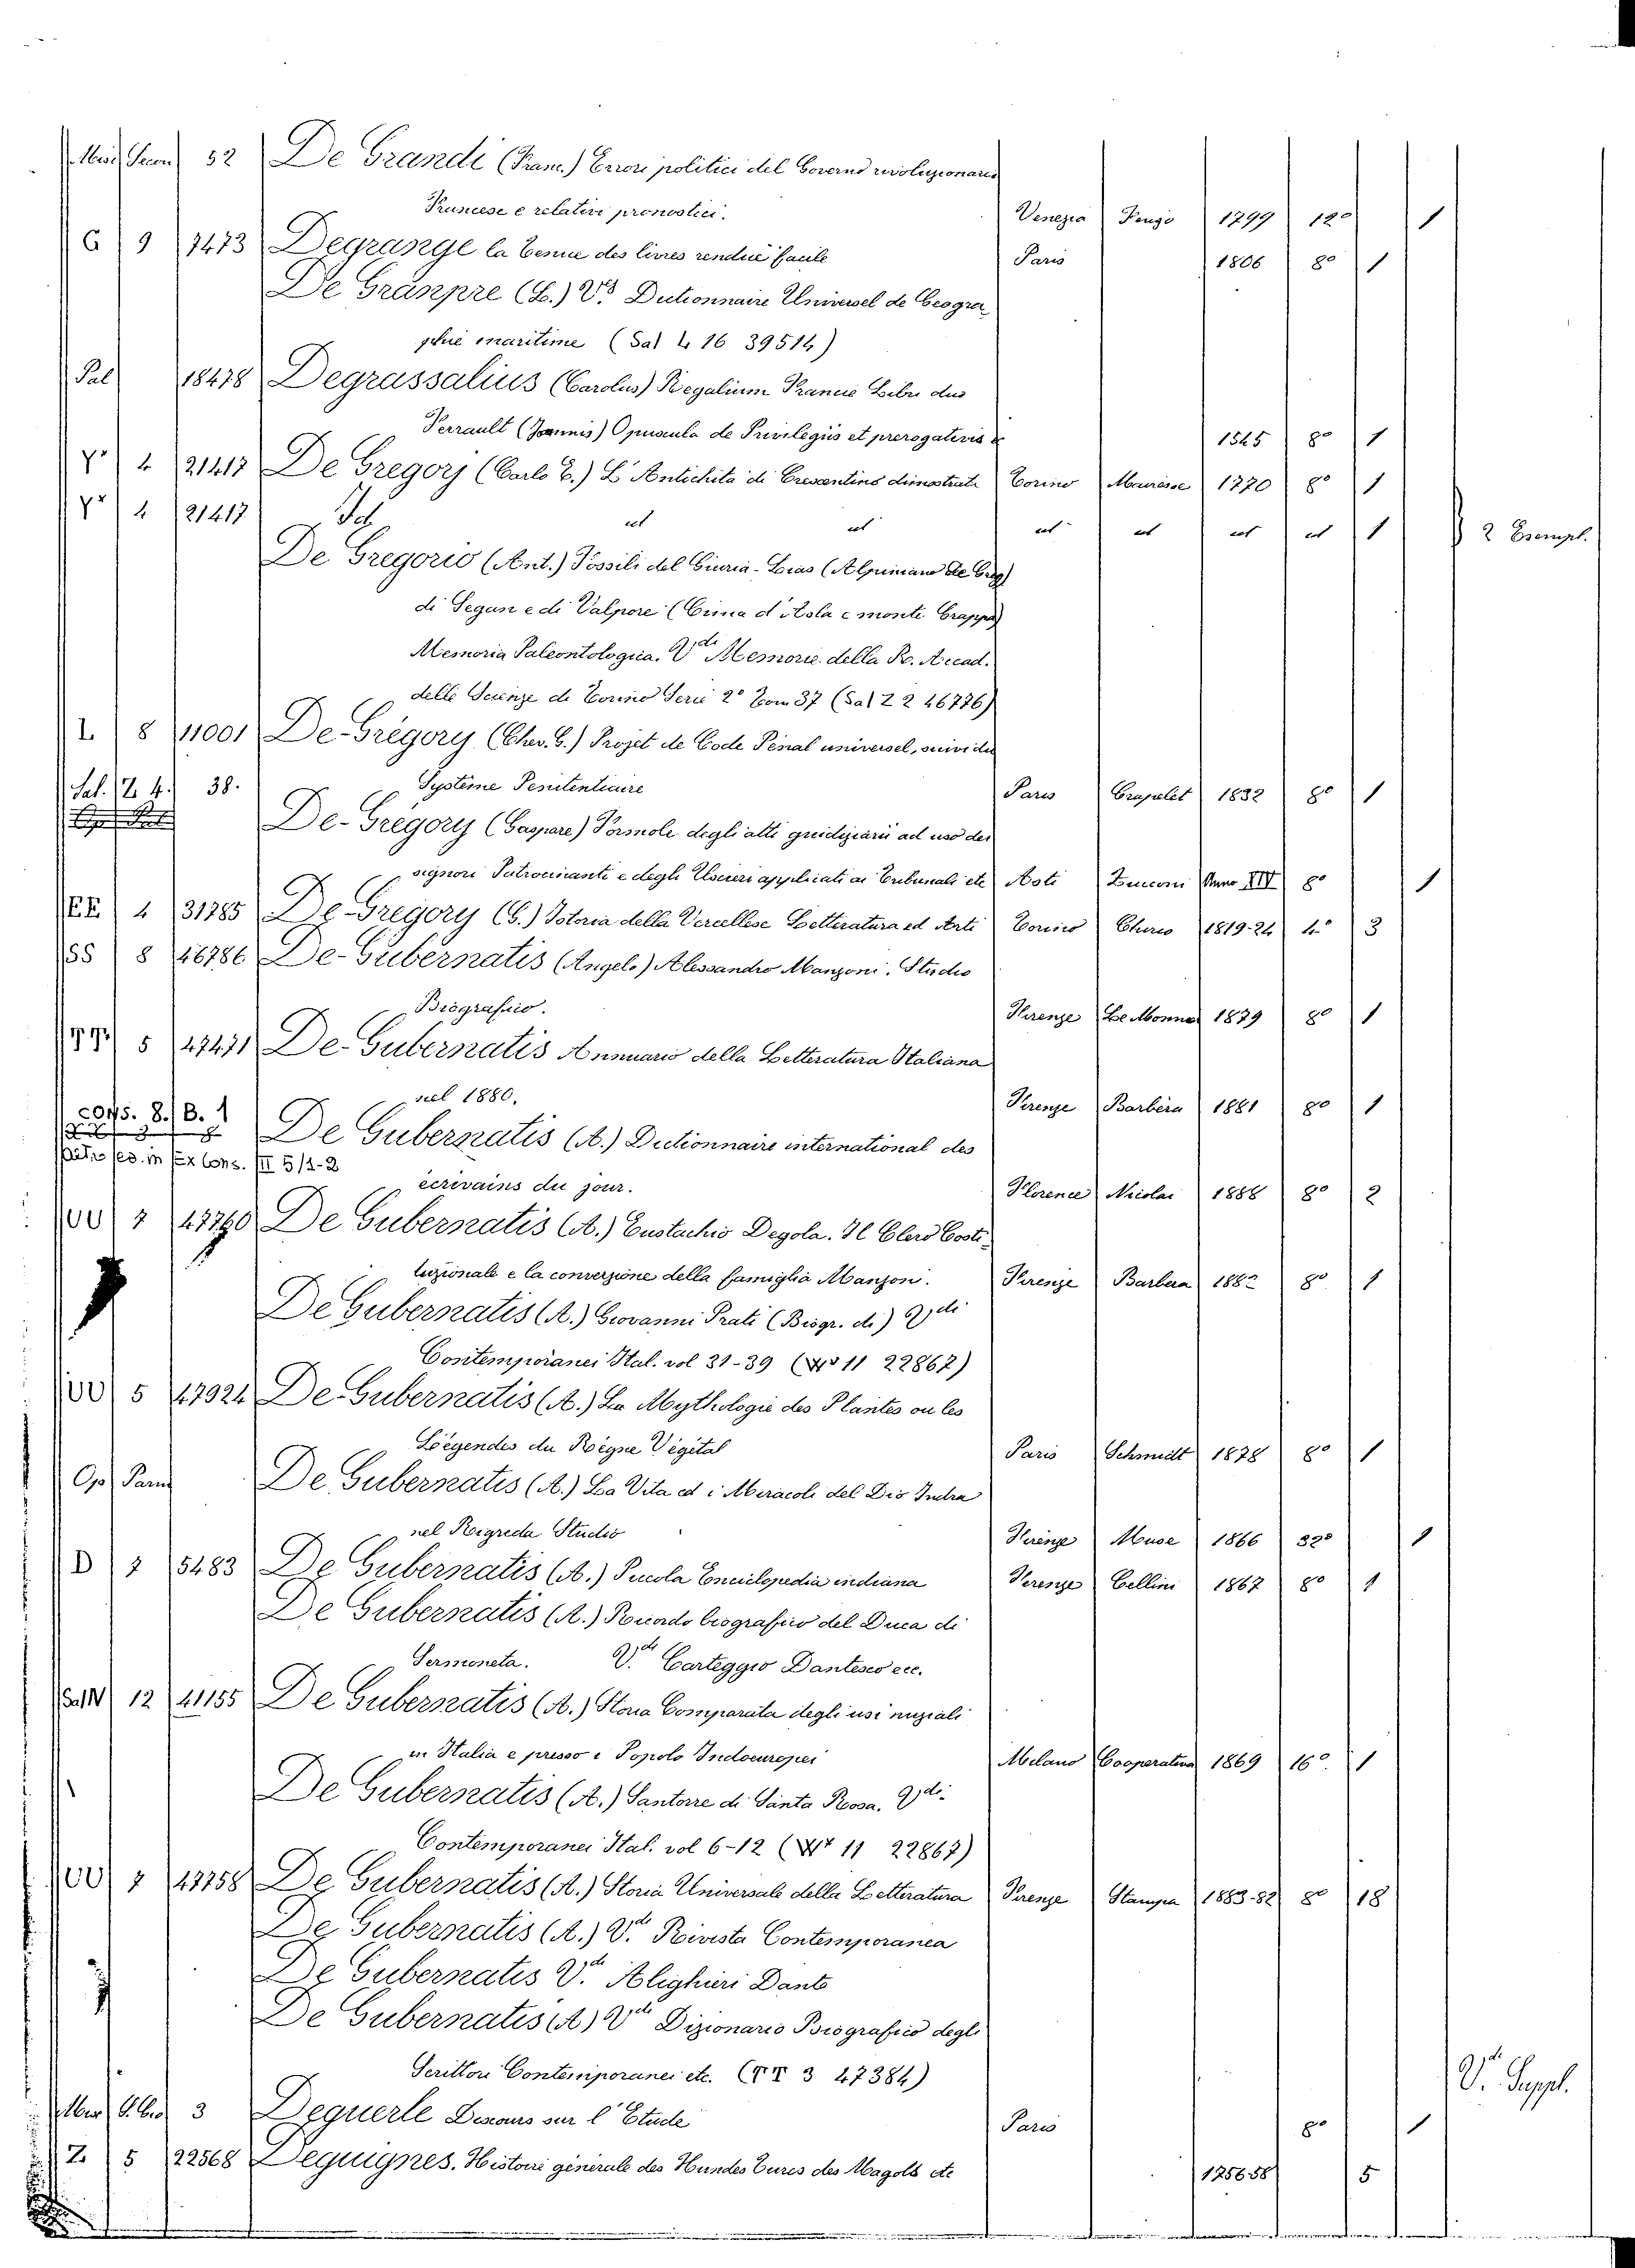 52 De Grandi (Franc.) Errori politici del Governo rivoluzionario
Francese e relativi pronostici. Venezia 1799 12º 1
G 9 7473 Degrange la tenue des livres rendue facile Paris 1806 8º 1
De Granpre (L.) Vº Dictionnaire Universel de Geogra
phie maritime (Sal L 16 39514)
Sal 18478 Degrassalius (Carolus) Regalium Francie Libri duo
Perrault (Joannis) Opuscula de Privilegiis et prerogativis & 1545 8º 1
Yº 4 21417 De Gregorj (Carlo E.) L'Antichita di Crescentino dimostrata Torino Mairesse 1770 8º 1
Yº 4 21417 Id ut ut ut ut ut ut 1 2 Esempl.
De Gregorio (Ant.) Fossili del Giura-Lias (Alpiniano De Greg)
di Segan e di Valpore (Cima d'Asla e monte Grappa)
Memoria Paleontologica. Vdi Memorie della R. Accad.
delle Scienze di Torino Serie 2º Tom 37 (Sal Z 2 46776)
L 8 11001 De-Gregory (Chev. G.) Projet de Code Pénal universel, suivi du
Système Penitentiaire Paris Crapelet 1832 8º 1
Sal. Z. 4. 38. De-Gregory (Gaspare) Formole degli atti giudiziarii ad uso dei
signori Patrocinanti e degli Uscieri applicati ai Tribunali etc Asti Zucconi Anno XIV 8º 1
EE 4 31785 De-Gregory (G.) Istoria della Vercellese Letteratura ed Arti Torino Chirio 1819-24 4º 3
SS 8 46786 De-Gubernatis (Angelo) Alessandro Manzoni. Studio
Biografico. Firenze Le Monnier 1879 8º 1
5 47471 De-Gubernatis Annuario della Letteratura Italiana
nel 1880. Firenze Barbèra 1881 8º 1
cons. 8. B. 1 De Gubernatis (A.) Dictionnaire international des
in ex Cons. III 5/1-2
écrivains du jour. Florence Nicolai 1888 8º 2
UU 7 47760 De Gubernatis (A.) Eustachio Degola. Il Clero Costi-
tuzionale e la conversione della famiglia Manzoni. Firenze Barbera 1882 8º 1
De Gubernatis (A.) Giovanni Prati (Biogr. di) Vdi
Contemporanei Ital. vol 31-39 ( 11 22867)
UU 5 47924 De-Gubernatis (A.) La Mythologie des Plantes ou les
Légendes du Règne Végétal Paris Schmidt 1878 8º 1
Op Parm De Gubernatis (A.) La Vita ed i Miracoli del Dio Indra
nel Rigveda Studio Firenze Muse 1866 32º 1
D 7 5483 De Gubernatis (A.) Piccola Enciclopedia indiana Firenze Cellini 1867 8º 1
De Gubernatis (A.) Ricordo biografico del Duca di
Sermoneta. Vdi Carteggio Dantesco ecc.
Sal N 12 41155 De Gubernatis (A.) Storia Comparata degli usi nuziali
in Italia e presso i Popoli Indoeuropei Milano Cooperativa 1869 16º 1
De Gubernatis (A.) Santorre di Santa Rosa. Vdi
Contemporanei Ital. vol 6-12 ( 11 22867)
UU 7 47758 De Gubernatis (A.) Storia Universale della Letteratura Firenze Stampa 1883-82 8º 18
De Gubernatis (A.) Vdi Rivista Contemporanea
De Gubernatis Vdi Alighieri Dante
De Gubernatis (A) Vdi Dizionario Biografico degli
Scrittori Contemporanei etc. (TT 3 47384)
3 Deguerle Discours sur l'Etude Paris 8º 1 Vdi Suppl.
Z. 5 22568 Deguignes. Histoire générale des Hundes Turcs des Magols etc 1756-58 5